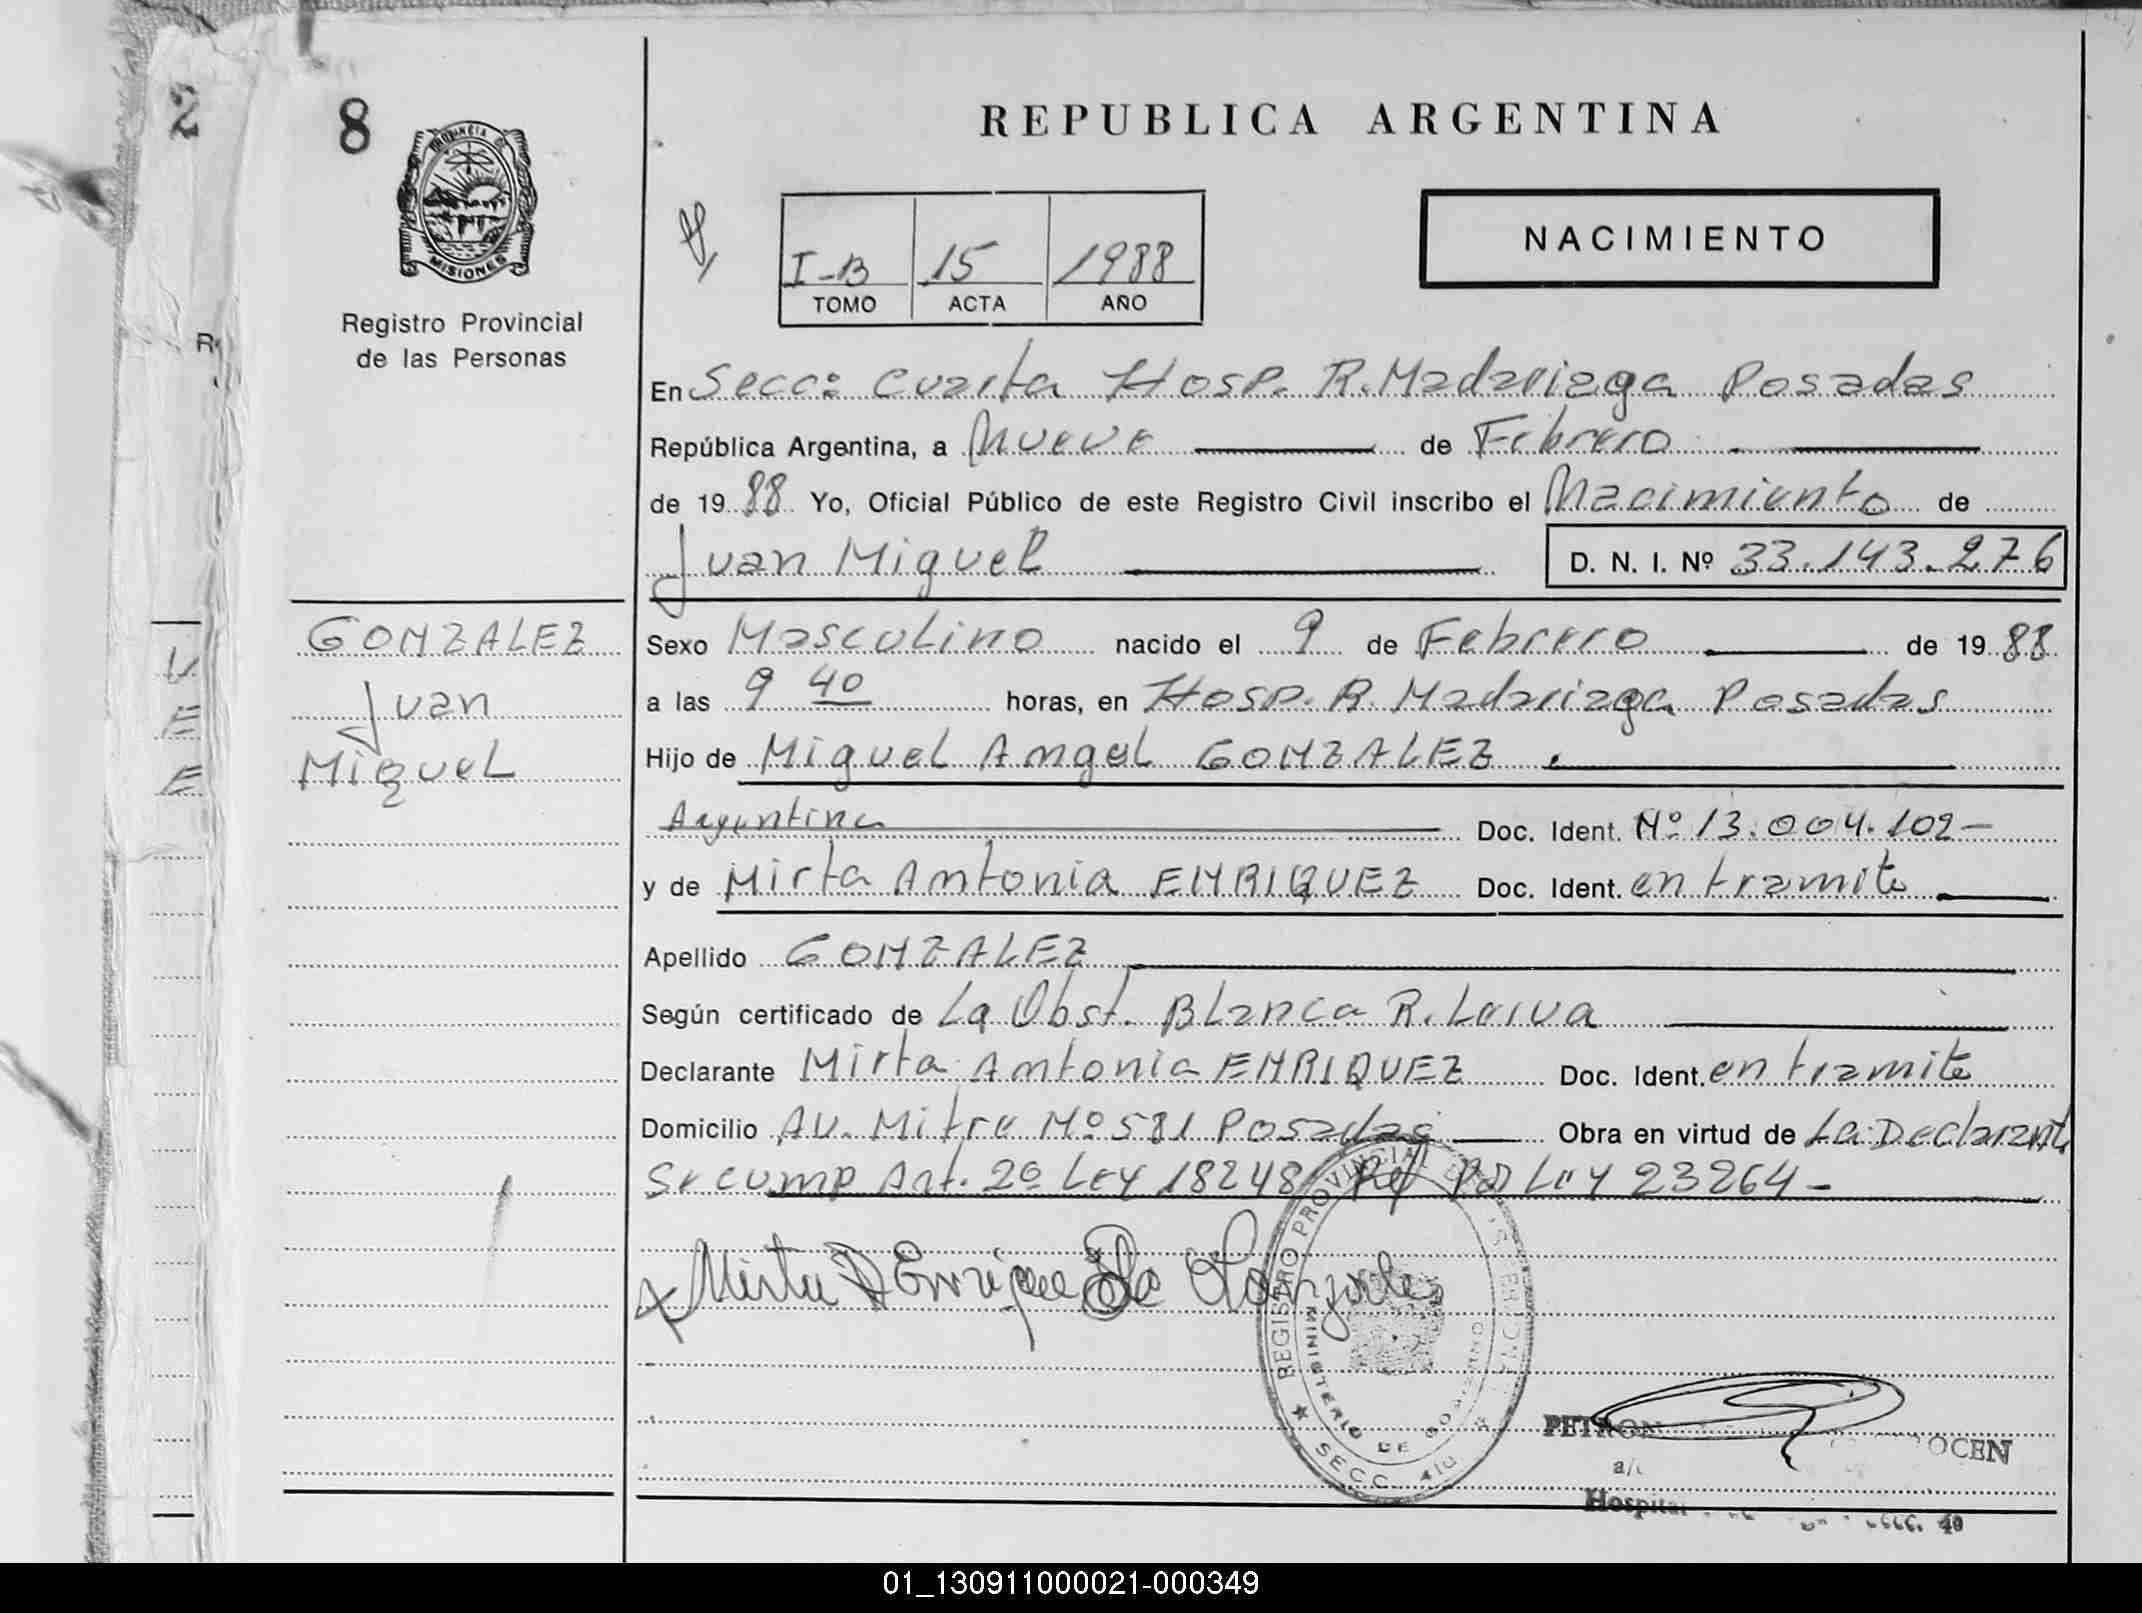 2
8
REPUBLICA ARGENTINA
PROVINCIA
MISIONES
Registro Provincial
de las Personas
I-B 15 1988
TOMO ACTA AÑO
NACIMIENTO
En Secc: Cuarta Hosp. R. Madariaga Posadas
República Argentina, a Nueve de Febrero
de 1988 Yo, Oficial Público de este Registro Civil inscribo el Nacimiento de
Juan Miguel D. N. I. Nº 33.143.276
GONZALEZ
Juan
Miguel
Sexo Masculino nacido el 9 de Febrero de 1988
a las 9 40 horas, en Hosp. R. Madariaga Posadas
Hijo de Miguel Angel GONZALEZ
Argentina Doc. Ident. Nº 13.004.102-
y de Mirta Antonia ENRIQUEZ Doc. Ident. en tramite
Apellido GONZALEZ
Según certificado de La Obst. Blanca R. Leiva
Declarante Mirta Antonia ENRIQUEZ Doc. Ident. en tramite
Domicilio Av. Mitre Nº 581 Posadas Obra en virtud de La Declarante
Se cump Art. 2º Ley 18248 Ref por Ley 23264-
Mirta A Enriquez de Gonzalez
REGISTRO PROVINCIAL DE LAS PERSONAS
MINISTERIO DE GOBIERNO
SECC. 4ta
a/c
Hospital
01_130911000021-000349